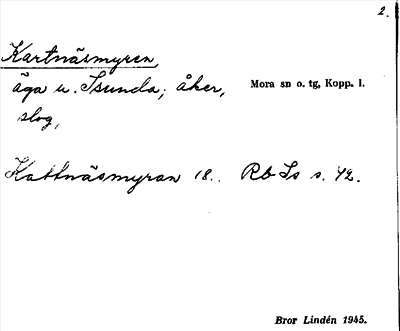 2.
Kartnäsmyren
äga u. Isunda; åker, Mora sn o. tg, Kopp. l.
slog,
Kattnäsmyran 18.. Rb Is s. 42.
Bror Lindén 1945.